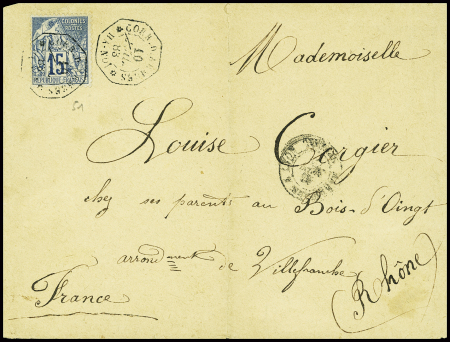 COLONIES
POSTES
15
REPUBLIQUE FRANÇAISE
10
83
Mademoiselle
Louise Corgier
chez ses parents au Bois-d'Oingt
arrondment de Villefranche
(Rhône)
France